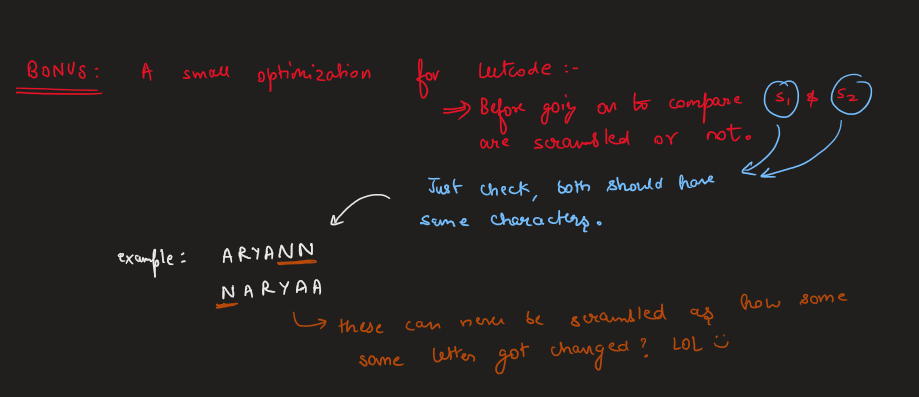 BONUS: A small optimization for Leetcode :-
⇒ Before going on to compare S1 & S2
are scrambled or not.
Just check, both should have
same characters.
example: ARYANN
NARYAA
these can never be scrambled as how some
some letter got changed? LOL